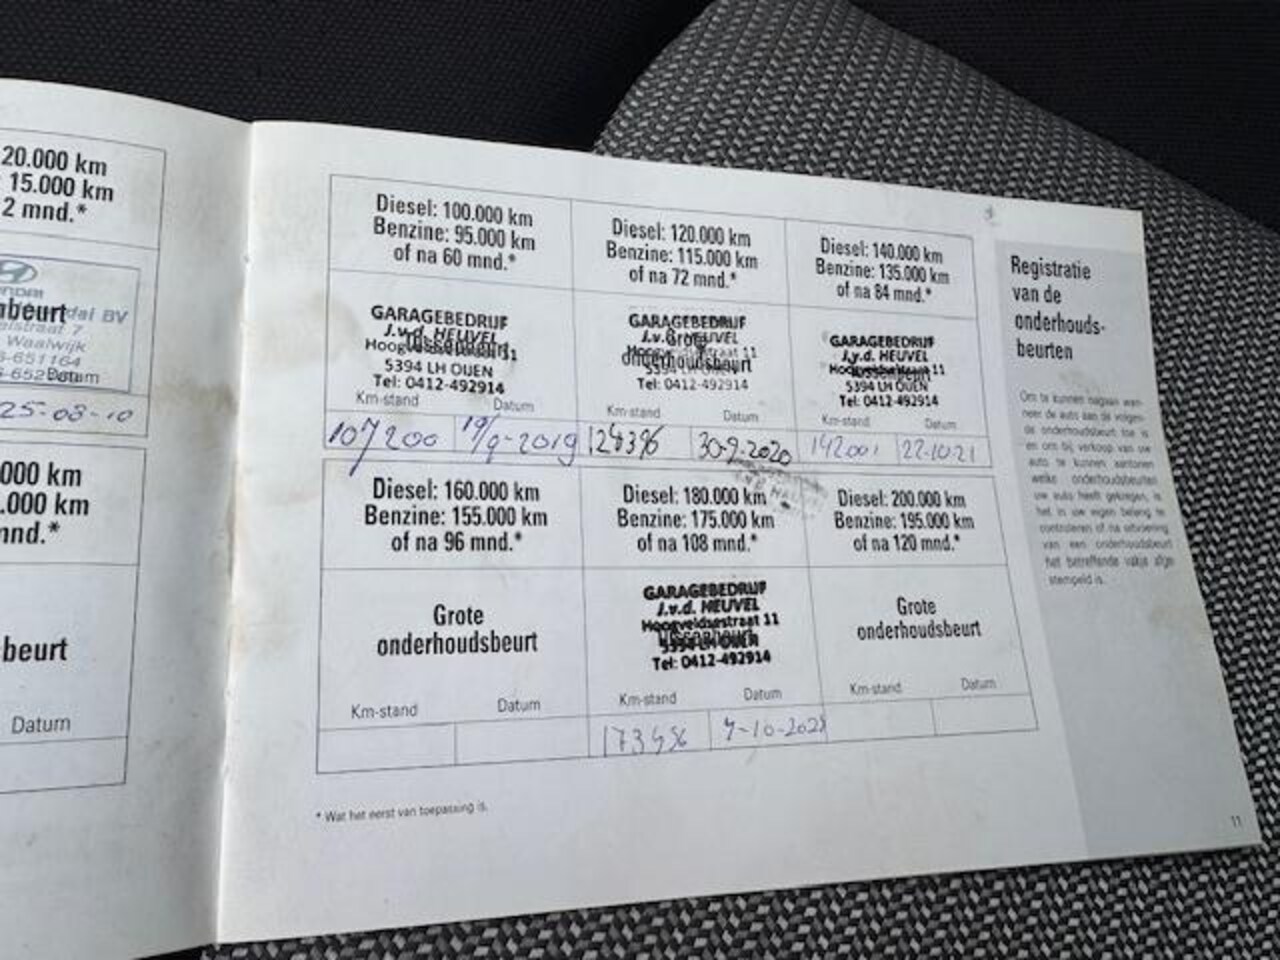 20.000 km
15.000 km
2 mnd.*
beurt
Waalwijk
Datum
25-08-10
000 km
.000 km
mnd.*
beurt
Datum
Diesel: 100.000 km
Benzine: 95.000 km
of na 60 mnd.*
GARAGEBEDRIJF
J.v.d. HEUVEL
5394 LH OIJEN
Tel: 0412-492914
Km-stand
Datum
107200
19/9-2019
Diesel: 120.000 km
Benzine: 115.000 km
of na 72 mnd.*
GARAGEBEDRIJF
Grote
onderhoudsbeurt
Tel: 0412-492914
Km-stand
Datum
30-9-2020
Diesel: 140.000 km
Benzine: 135.000 km
of na 84 mnd.*
GARAGEBEDRIJF
J.v.d. HEUVEL
5394 LH OIJEN
Tel: 0412-492914
Km-stand
Datum
142001
22-10-21
Diesel: 160.000 km
Benzine: 155.000 km
of na 96 mnd.*
Grote
onderhoudsbeurt
Km-stand
Datum
Diesel: 180.000 km
Benzine: 175.000 km
of na 108 mnd.*
GARAGEBEDRIJF
J.v.d. HEUVEL
Hoogveldsestraat 11
Tel: 0412-492914
Km-stand
Datum
Diesel: 200.000 km
Benzine: 195.000 km
of na 120 mnd.*
Grote
onderhoudsbeurt
Km-stand
Datum
* Wat het eerst van toepassing is.
Registratie
van de
onderhouds-
beurten
Om te kunnen nagaan wan-
neer de auto aan de volgen-
de onderhoudsbeurt toe is
en om bij verkoop van uw
auto te kunnen aantonen
welke onderhoudsbeurten
uw auto heeft gekregen, is
het in uw eigen belang te
controleren of na uitvoering
van een onderhoudsbeurt
het betreffende vakje afge-
stempeld is.
11